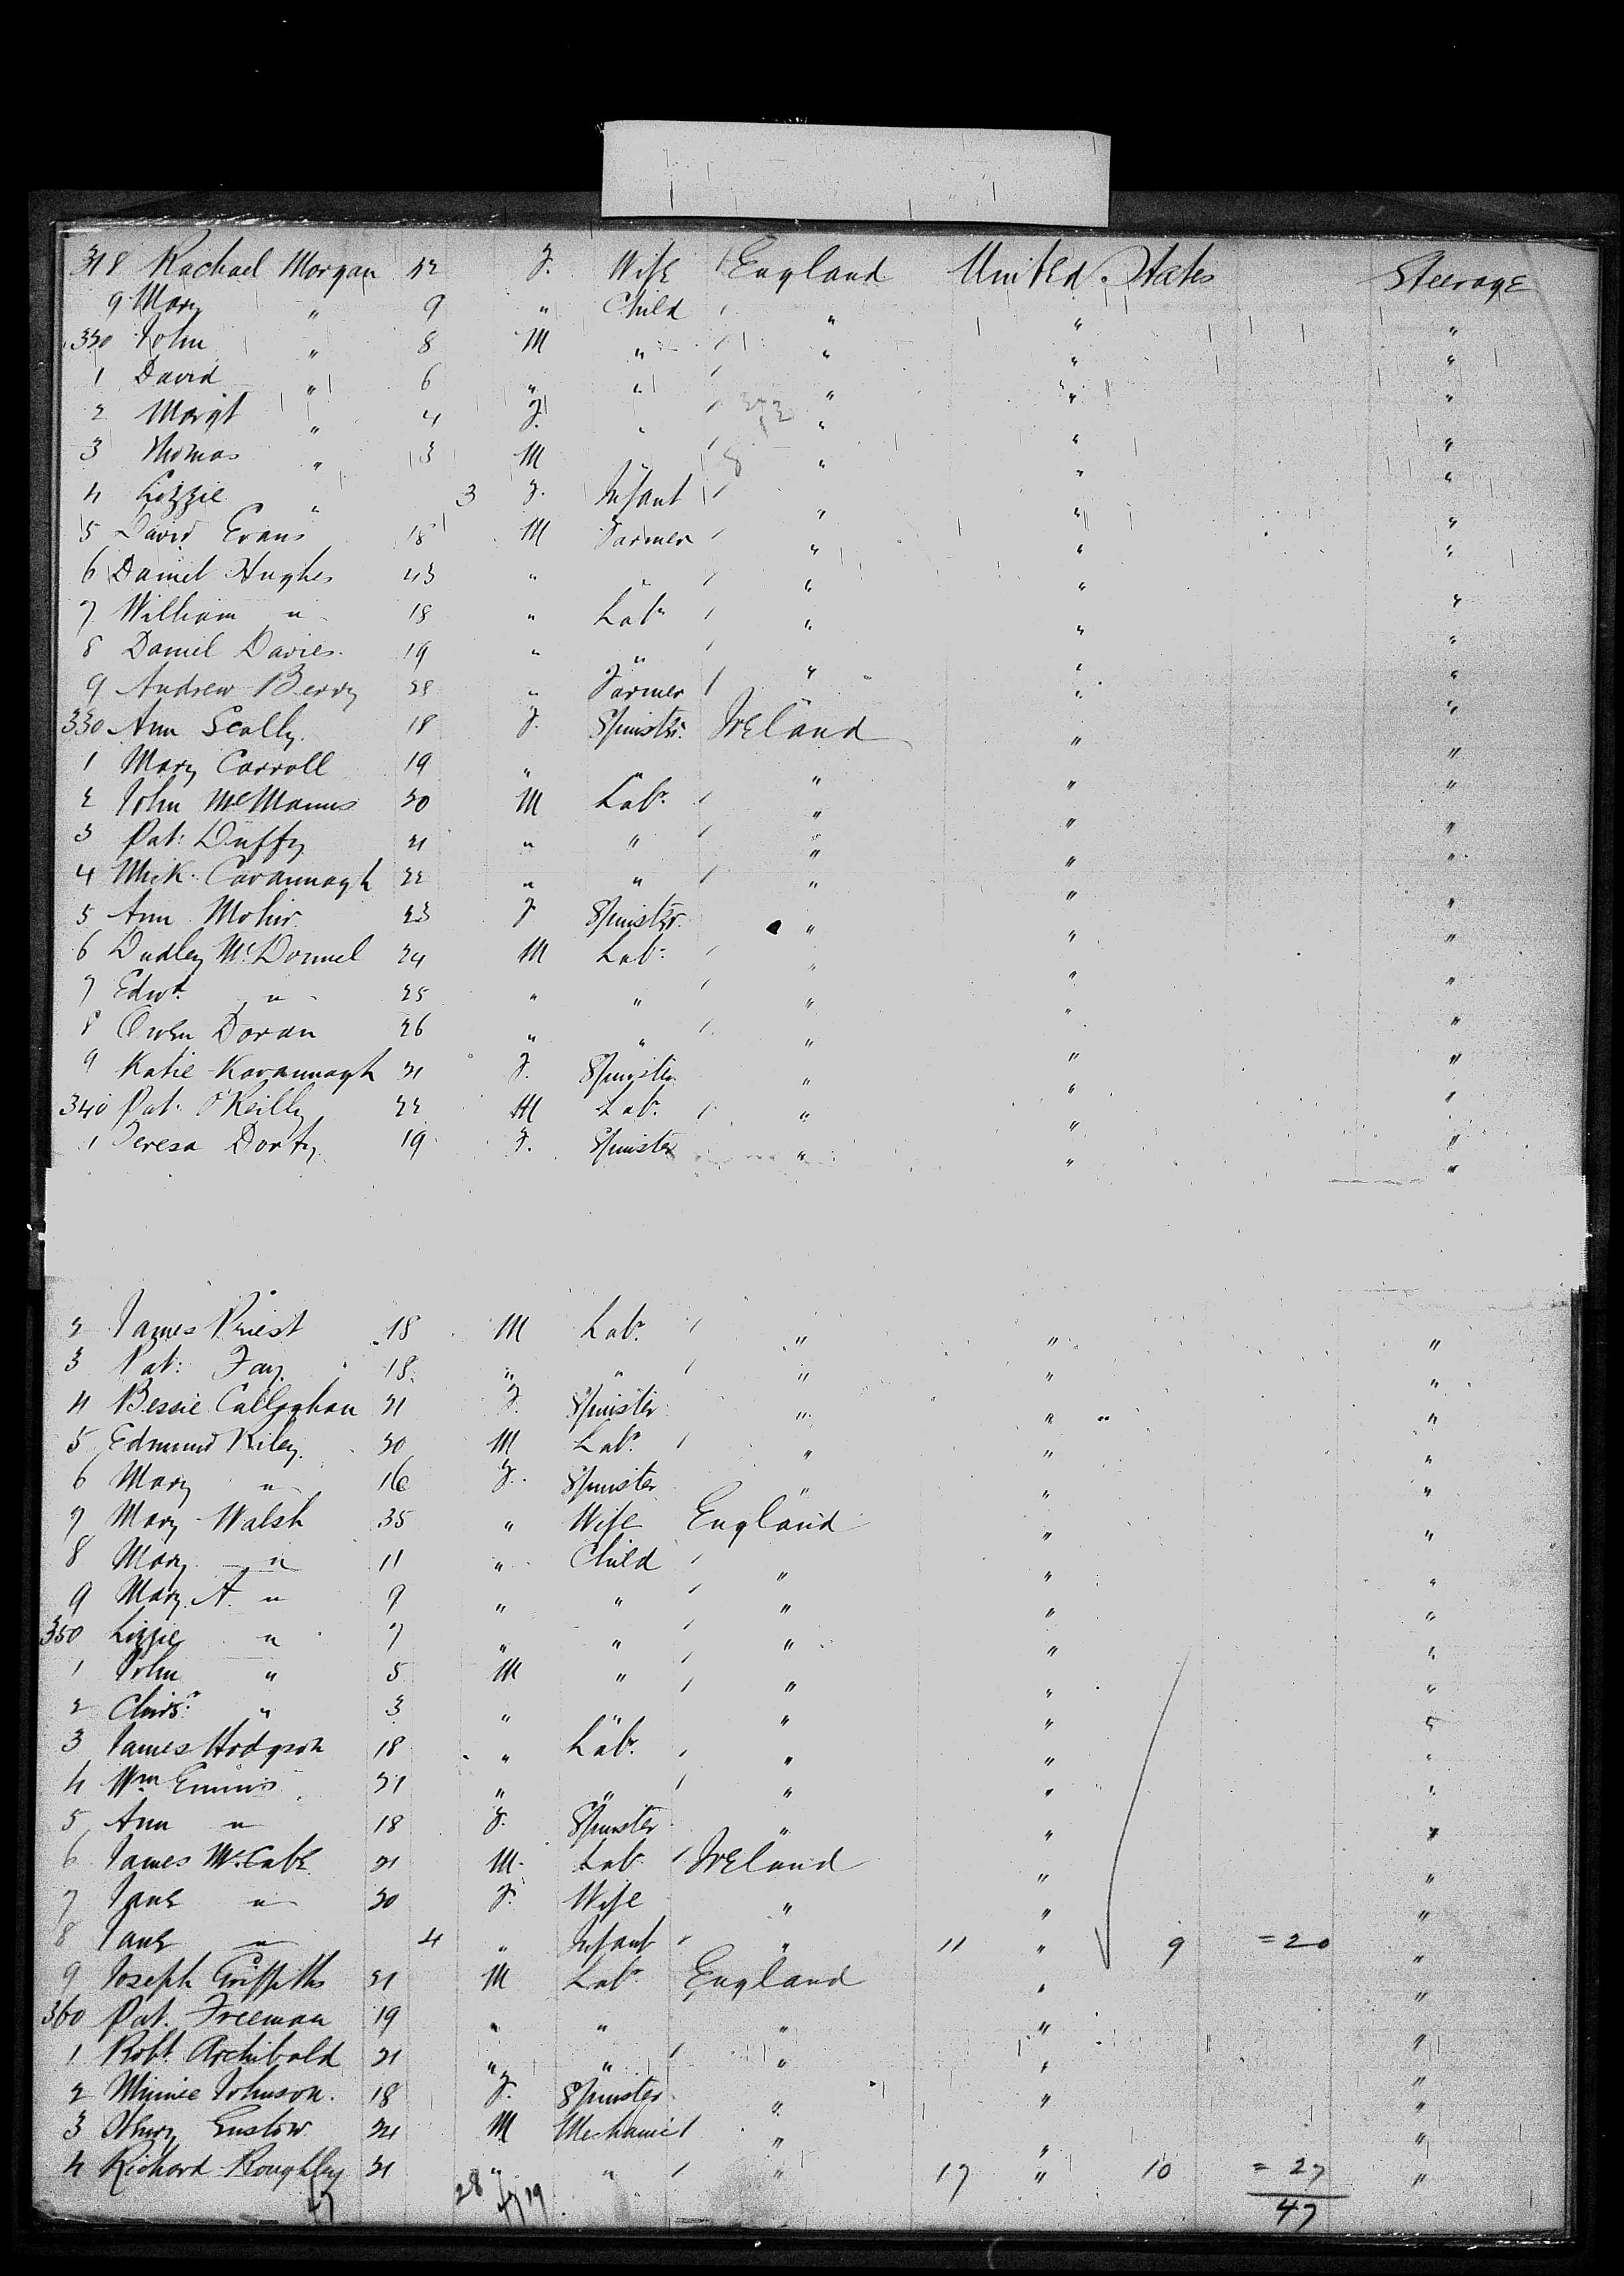 318 Rachael Morgan 32 F. Wife England United States Steerage
9 Mary " 9 " Child " " "
320 John " 8 M " " " "
1 David " 6 " " " " "
2 Margt " 4 F. " " " "
3 Thomas " 3 M " " " "
4 Lizzie " 3 F. Infant " " "
5 David Evans 18 M Farmer " " "
6 Daniel Hughes 43 " " " " "
7 William " 18 " Labr " " "
8 Daniel Davies 19 " " " " "
9 Andrew Berry 28 " Farmer " " "
330 Ann Scally 18 F. Spinster Ireland " "
1 Mary Carroll 19 " " " " "
2 John McManus 20 M Labr " " "
3 Pat: Duffy 21 " " " " "
4 Mick. Cavannagh 22 " " " " "
5 Ann 23 F Spinster " " "
6 Dudley McDonnel 24 M Labr " " "
7 Edwd " 25 " " " " "
8 Owen Doran 26 " " " " "
9 Katie Kavannagh 21 F. Spinster " " "
340 Pat. O'Reilly 22 M Labr " " "
1 Teresa Dorty 19 F. Spinster " " "
2 James Priest 18 M Labr " " "
3 Pat: Fay 18 " " " " "
4 Bessie Callaghan 21 F. Spinster " " "
5 Edmund Riley 20 M Labr " " "
6 Mary " 16 F. Spinster " " "
7 Mary Walsh 35 " Wife England " "
8 Mary " 11 " Child " " "
9 Mary A. " 9 " " " " "
350 Lizzie " 7 " " " " "
1 John " 5 M " " " "
2 Chirs: " 3 " " " " "
3 James Hodgson 18 " Labr " " "
4 Wm 21 " " " " "
5 Ann " 18 F. Spinster " " "
6 James McCabe 21 M. Lab Ireland " "
7 Jane " 20 F. Wife " " "
8 Jane " 4 " Infant " 11 " 9 = 20 "
9 Joseph Griffiths 21 M Labr England " "
360 Pat. Freeman 19 " " " " "
1 Robt Archibald 21 " " " " "
2 Minnie Johnson. 18 F. Spinster " " "
3 Henry 24 M Mechanic " " "
4 Richard Roughley 21 " " " 17 " 10 = 27 "
47 28 47 19 47